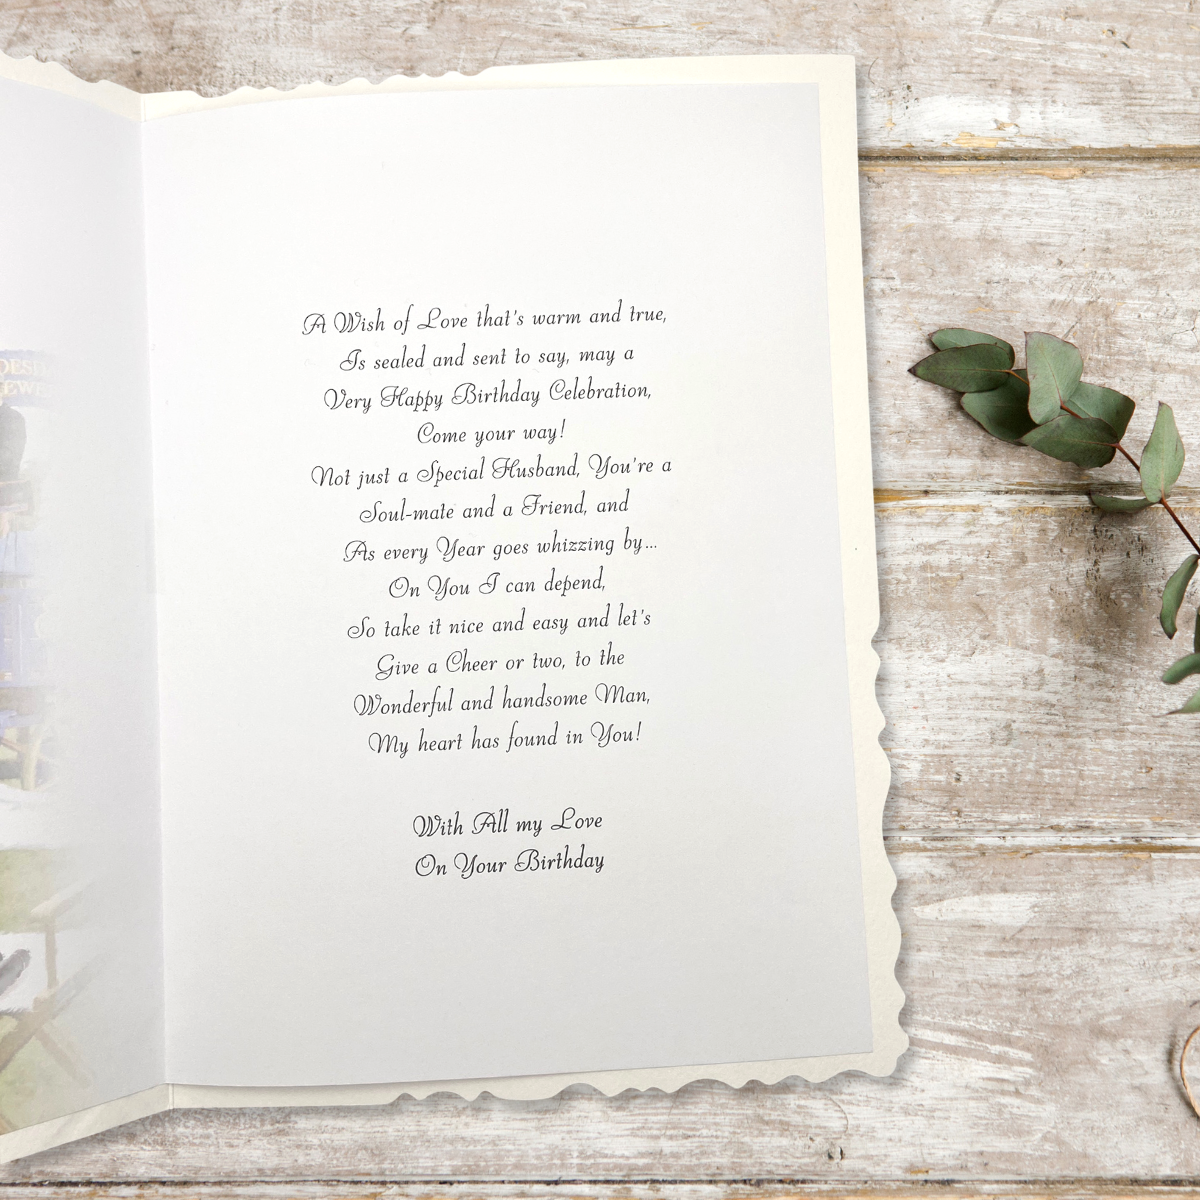 A Wish of Love that's warm and true,
Is sealed and sent to say, may a
Very Happy Birthday Celebration,
Come your way!
Not just a Special Husband, You're a
Soul-mate and a Friend, and
As every Year goes whizzing by...
On You I can depend,
So take it nice and easy and let's
Give a Cheer or two, to the
Wonderful and handsome Man,
My heart has found in You!
With All my Love
On Your Birthday